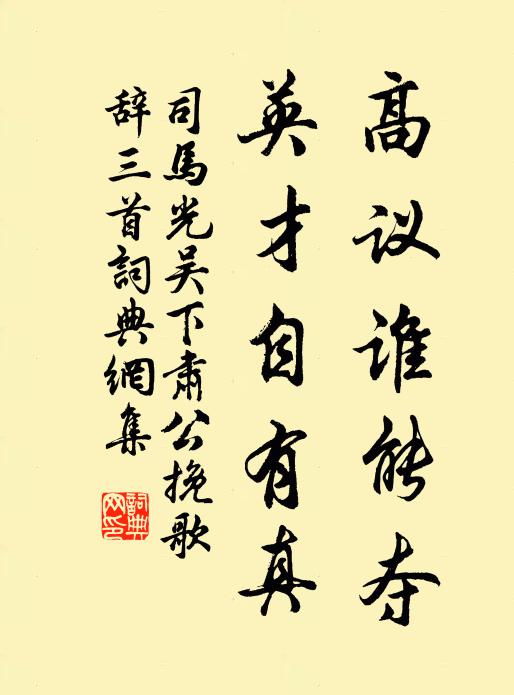 高议谁能夺
英才自有真
司馬光吴下肃公挽歌
辞三首詞典網集
詞典网印